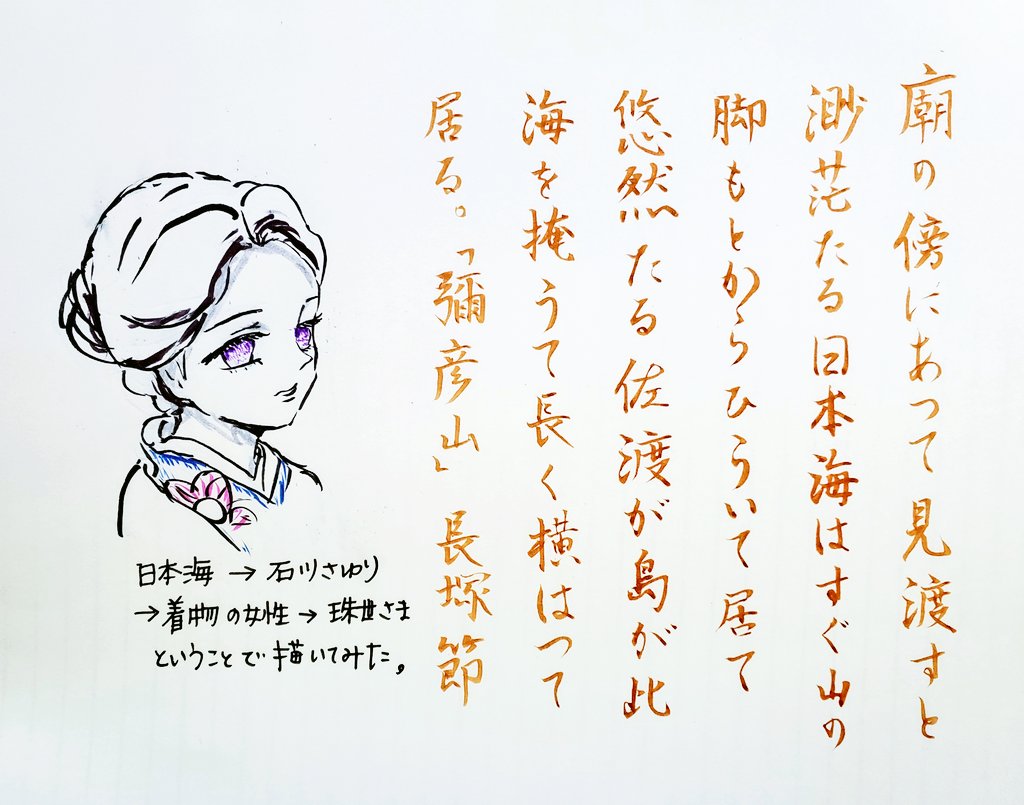 廟の傍にあつて見渡すと
渺茫たる日本海はすぐ山の
脚もとからひらいて居て
悠然たる佐渡が島が此
海を掩うて長く横はつて
居る。「彌彦山」 長塚節
日本海→石川さゆり
→着物の女性→珠世さま
ということで描いてみた。